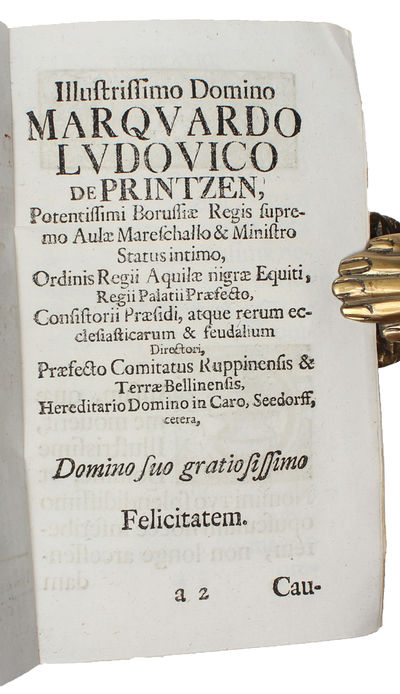 Illuſtriſſimo Domino
MARQVARDO
LVDOVICO
DE PRINTZEN,
Potentiſſimi Boruſſiæ Regis ſupre-
mo Aulæ Mareſchallo & Miniſtro
Status intimo,
Ordinis Regii Aquilæ nigræ Equiti,
Regii Palatii Præfecto,
Conſiſtorii Præſidi, atque rerum ec-
cleſiaſticarum & feudalium
Directori,
Præfecto Comitatus Ruppinenſis &
Terræ Bellinenſis,
Hereditario Domino in Caro, Seedorff,
cetera,
Domino ſuo gratioſiſſimo
Felicitatem.
a 2 Cau-